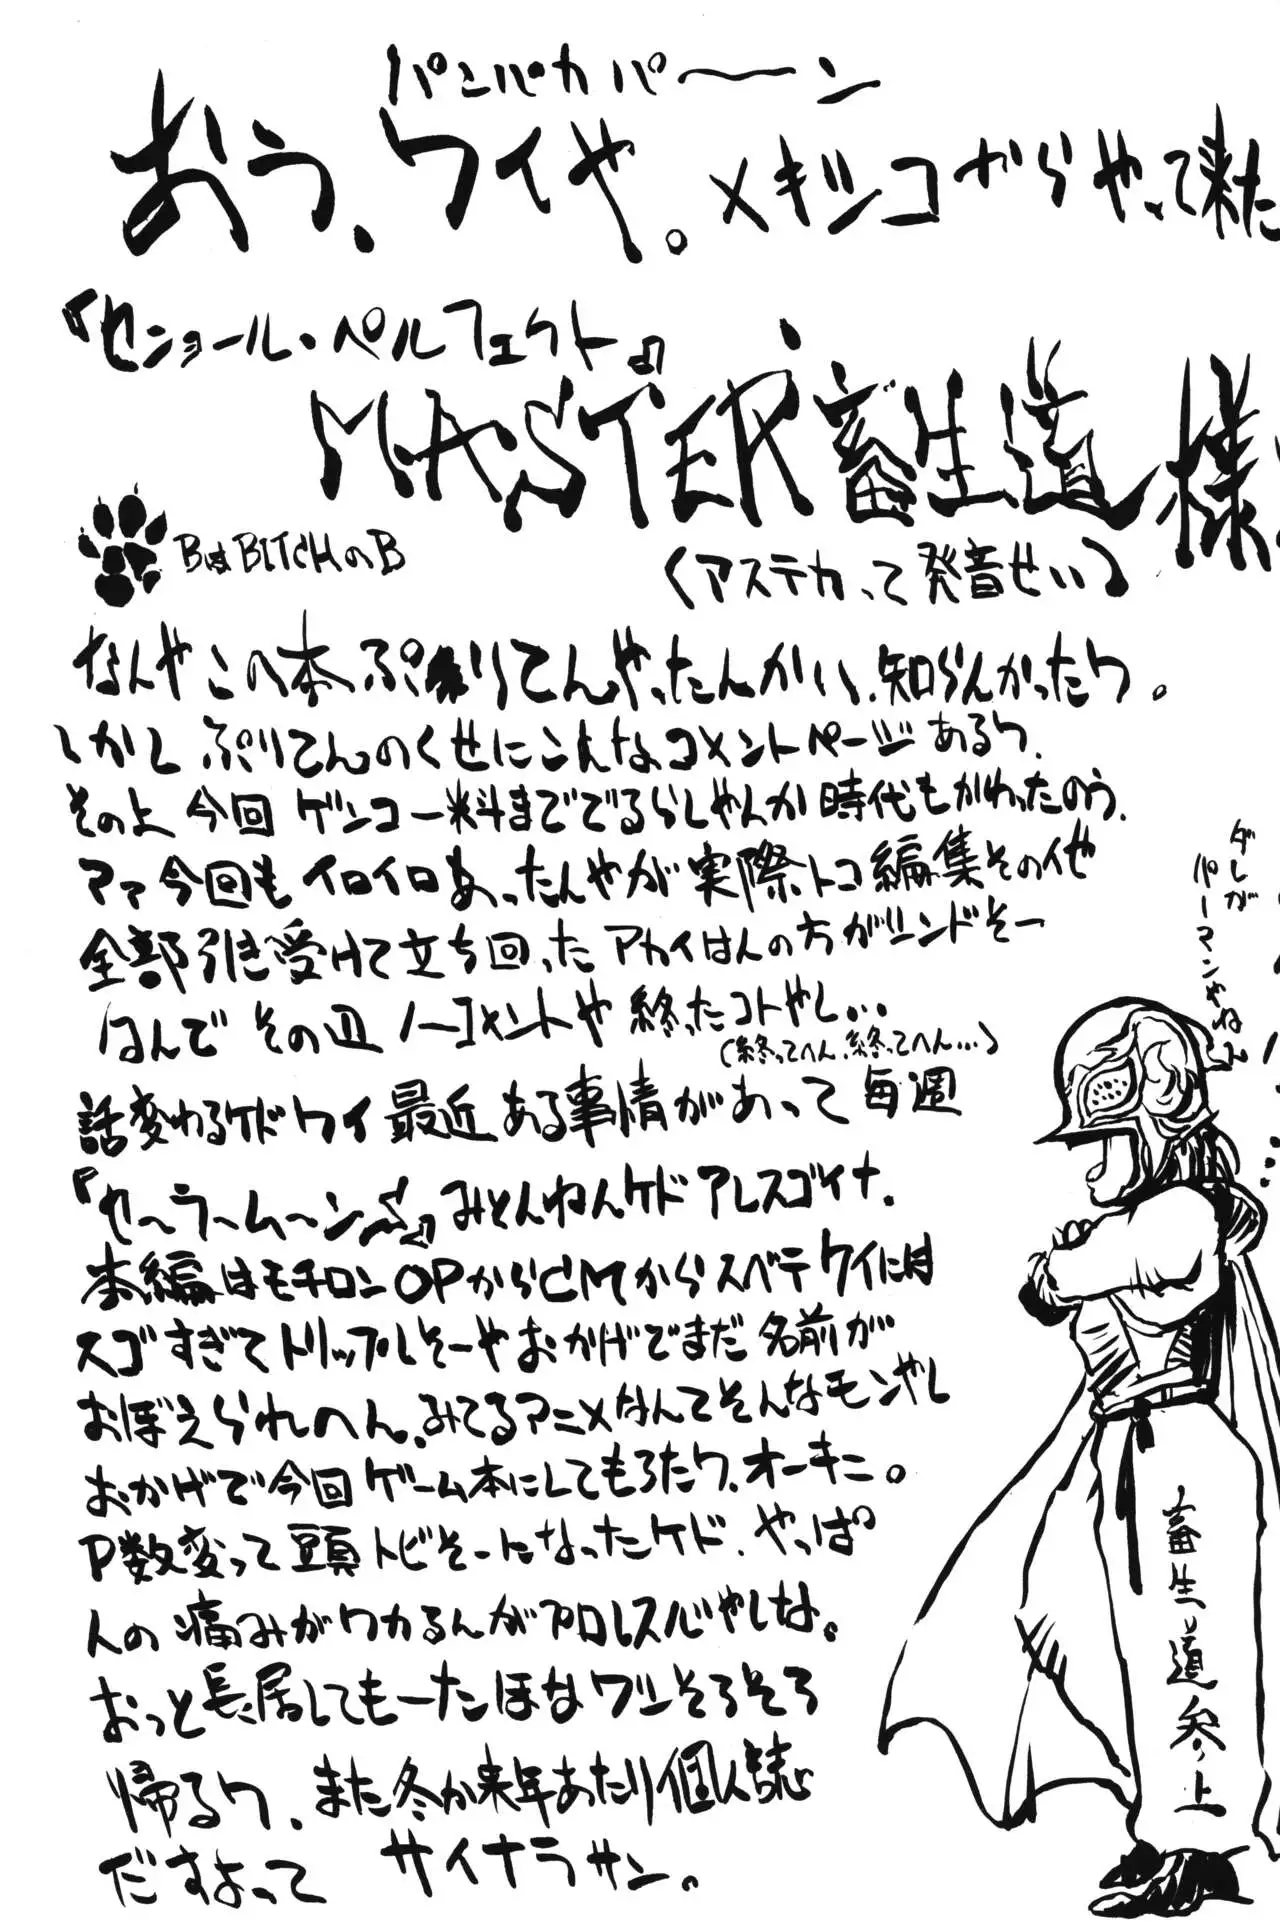 パンパカパ〜ン
おう、ワイや。メキシコからやって来た
『セニョール・ペルフェクト』
MASTER畜生道様
BはBITCHのB
(アステカって発音せい)
なんやこの本ぷりてんやったんかい、知らんかったワ。
しかしぷりてんのくせにこんなコメントページあるワ、
その上今回ゲンコー料まででるらしやんか時代もかわったのう、
マァ今回もイロイロあったんやが実際トコ編集その他
全部引き受けて立ち回ったアカイはんの方がシンドそー
ほんでその辺ノーコメントや終ったコトやし…
(終ってへん、終ってへん…)
話変わるケドワイ最近ある事情があって毎週
『セーラームーンS』みとんねんケドアレスゴイナ、
本編はモチロンOPからCMからスベテワイには
スゴすぎてトリップしそーやおかげでまだ名前が
おぼえられへん、みてるアニメなんてそんなモンやし
おかげで今回ゲーム本にしてもろたワ、オーキニ。
P数変って頭トビそーになったケド、やっぱ
人の痛みがワカるんがプロレス心やしな。
おっと長居してもーたほなワシそろそろ
帰るワ、また冬か来年あたり個人誌
だすよって サイナラサン。
ダレが
パーマンやねん
畜生道参上